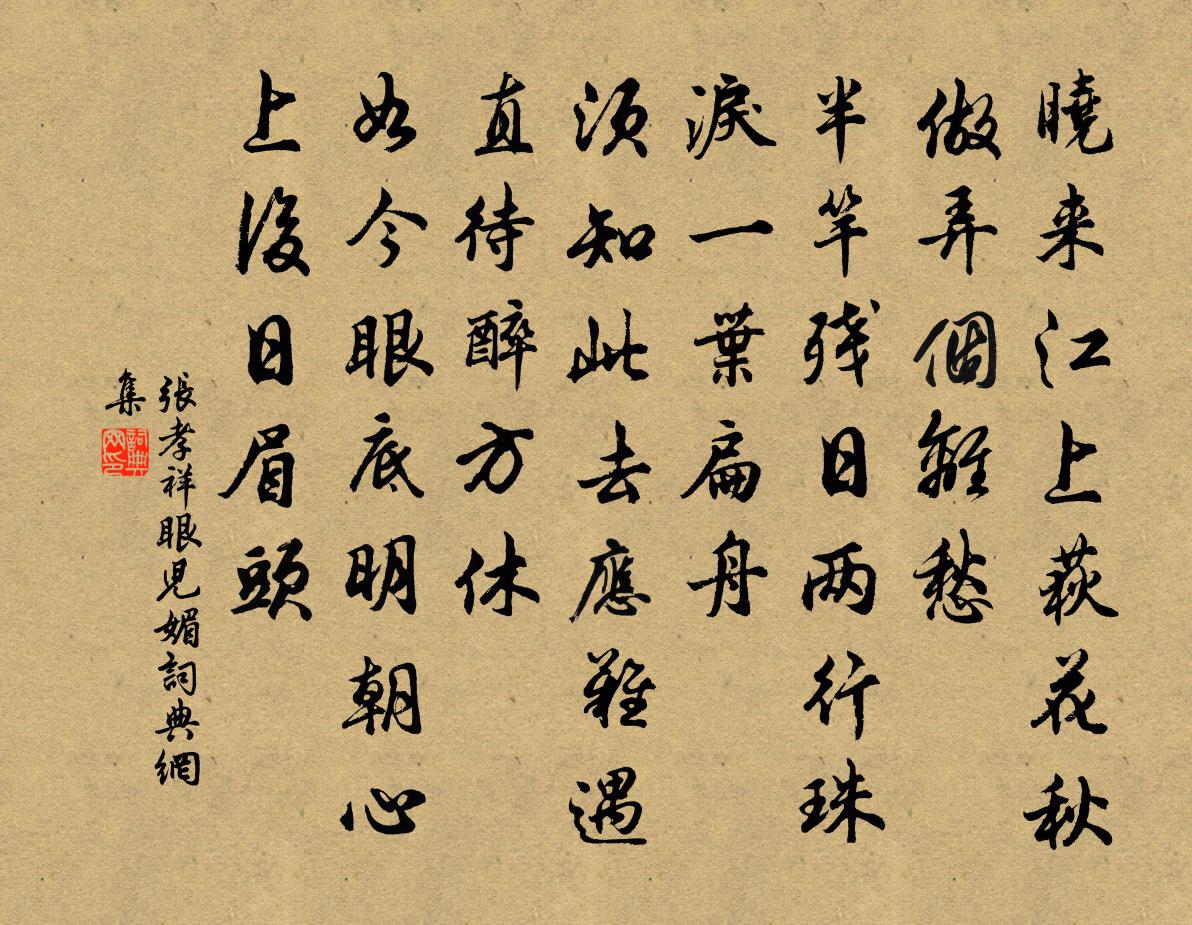 曉来江上荻花秋
做弄個離愁
半竿残日两行珠
淚一葉扁舟
須知此去應難遇
直待醉方休
如今眼底明朝心
上後日眉頭
張孝祥眼児媚詞典網
集
詞典網印